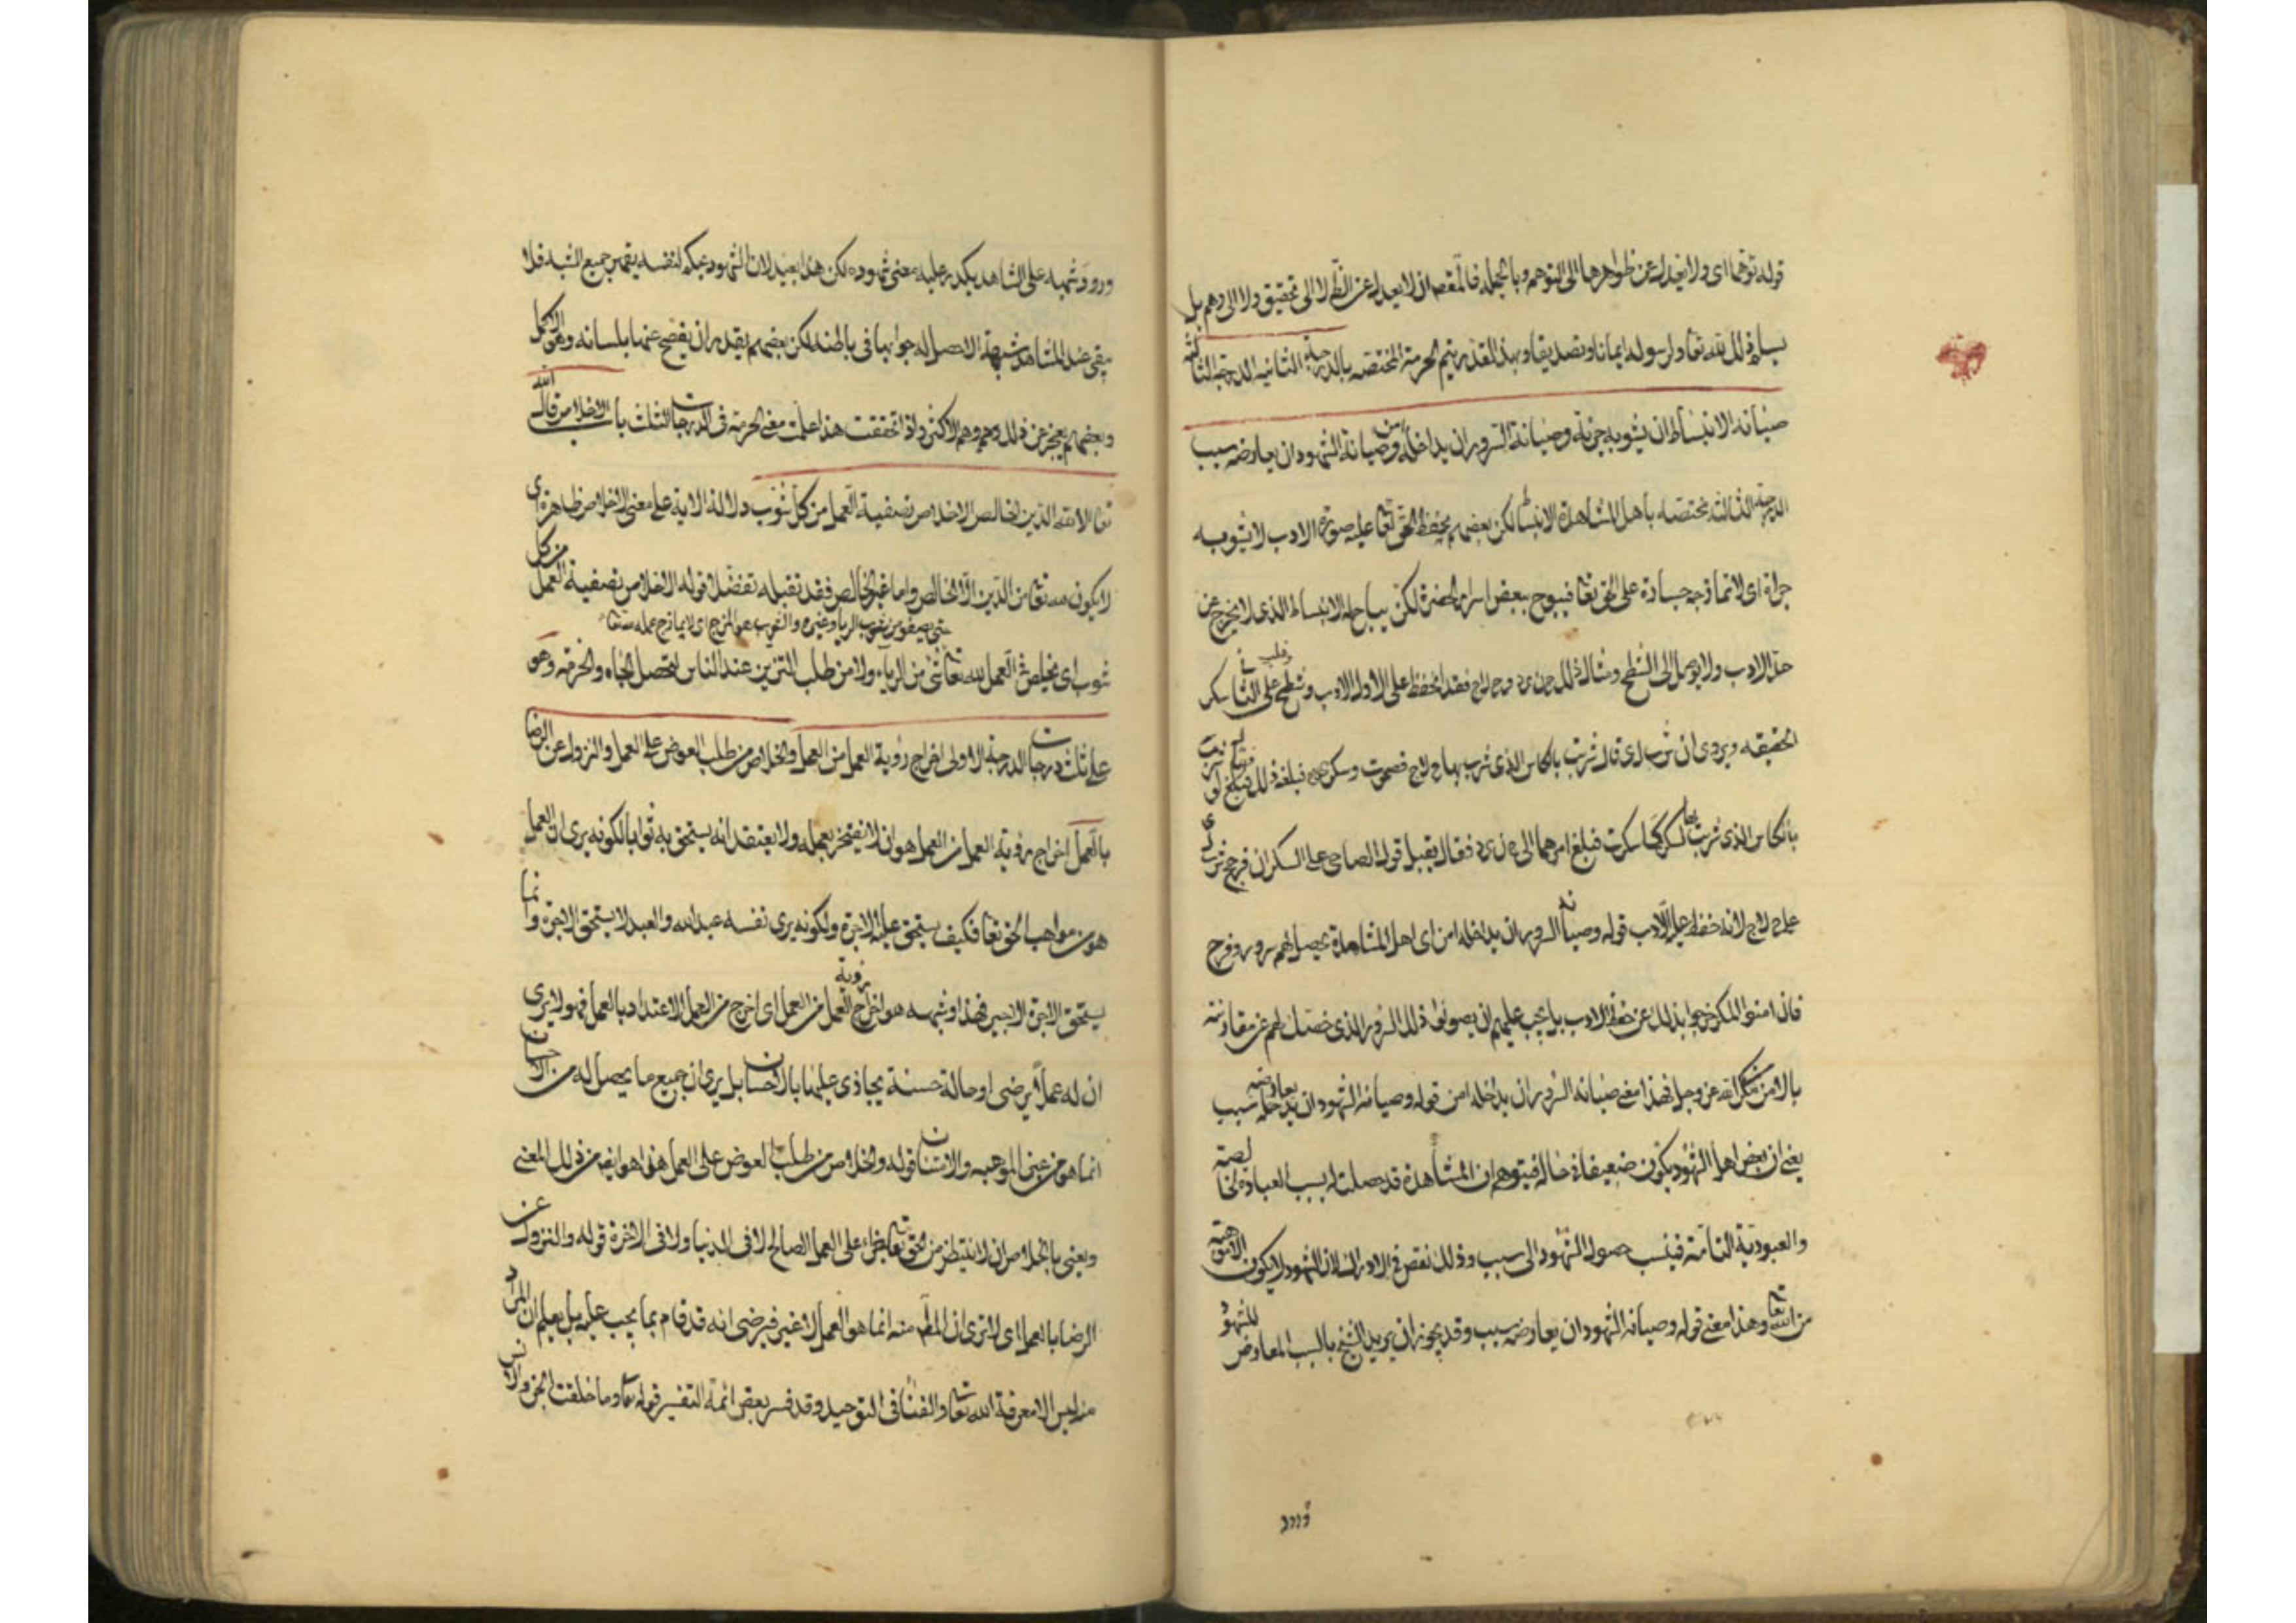 قوله توهما اى ولا يعدل عن ظواهرها الى التوهم وبالجملة فالمقصد ان لا يعدل عن النظم لا الى تحقيق ولا الى وهم بل
يسلم ذلك لله تعا ولرسوله ايمانا وتصديقا وبهذا المقدر يتم الحرمة المختصه بالدرجة الثانيه الدرجة الثالثة
صيانة الانبساط ان يشوبه جرئة وصيانة السرور ان يداخله امن وصيانة الشهود ان يعارضه سبب
الدرجة الثالثة مختصه بأهل المشاهدة الانبساط لكن بعضهم يحفظ الحق تعا عليه صورة الادب لا يشوبه
جراة اى لا تمازجه جسارة على الحق تعا فيبوح ببعض اسرار الحضرة لكن يباح له الانبساط الذى لا يخرج عن
حد الادب ولا يوصل الى الشطح ومثال ذلك فقد انحفظ على الاول الادب وشطح على الثانى وغلب سكر
الحقيقه ويروى ان قال شربت بالكاس الذى شرب بها حلاج فصحوت وسكر فبلغه ذلك فقال لو شرب
بالكاس الذى شربت بها لسكر كما سكرت فبلغ امرهما الى فقال يقبل قول الصاحى على السكران فرجح
على حلاج لانه حفظ عليه الادب قوله وصيانة السرور ان يداخله امن اى اهل المشاهدة يحصل لهم سرور وفرح
فان امنوا المكر خرجوا بذلك عن حفظ الادب بل يجب عليهم ان يصونوا ذلك السرور الذى حصل لهم عن مقارنته
بالامن من مكر الله عز وجل فهذا معنى صيانة السرور ان يداخله امن قوله وصيانة الشهود ان يعارضه سبب
يعنى ان بعض اهل الشهود يكون ضعيفا فى حاله فيتوهم ان المشاهدة قد حصلت له بسبب العبادة الخالصة
والعبودية التامة فينسب حصول الشهود الى سبب وذلك نقص فى الادراك لان الشهود لا يكون الا موهبة
من الله تعا وهذا معنى قوله وصيانة الشهود ان يعارضه سبب وقد يجوز ان يريد الشيخ بالسبب المعارض للشهود
ورود شبهه على الشاهد يكدر عليه معنى شهوده لكن هذا بعيد لان الشهود بحكم لنفسه يقهر جميع الشبه فلا
يبقى عند المشاهد شبهة الا حصل له جوابها فى باطنه لكن بعضهم يقدر ان يفصح عنها بلسانه وهو الاكمل
وبعضهم يعجز عن ذلك وهم الاكثر واذا تحققت هذا علمت معنى الحرمة فى الدرجات الثلث باب الاخلاص قال الله
تعا الا لله الدين الخالص الاخلاص تصفية العمل من كل شوب دلالة الاية على معنى الاخلاص ظاهرة اى
لا يكون لله تعا من الدين الا الخالص واما غير الخالص فقد تقبله تفضلا قوله الاخلاص تصفية العمل من كل
حتى يصفو من شوب الريا وغيره والشوب هو المزج اى لا يمازج عمله
شوب اى يخلص فى العمل لله تعا شئ من الرياء ولا من طلب التزين عند الناس لتحصل الجاه والحرمة وهو
على ثلث درجات الدرجة الاولى اخراج رؤية العمل من العمل والخلاص من طلب العوض على العمل والنزول عن الرضا
بالعمل اخراج رؤية العمل من العمل هو ان لا يفتخر بعمله ولا يعتقد انه يستحق به ثوابا لكونه يرى ان العمل
هو من مواهب الحق تعا فكيف يستحق عليه الاجرة ولكونه يرى نفسه عبد الله والعبد لا يستحق الاجرة وانما
يستحق الاجرة الاجير فهذا وشبهه هو اخراج رؤية العمل من العمل اى اخرج من العمل الاعتداد بالعمل فهو لا يرى
ان له عملا يرضى او حالة حسنة يجازى عليها بالاحسان بل يرى ان جميع ما يحصل له من الاحسان
انما هو من عين الموهبه والامتنان قوله والخلاص من طلب العوض على العمل هذا هو ايضا من ذلك المعنى
ويعنى بالخلاص ان لا ينتظر من الحق تعا جزاء على العمل الصالح لا فى الدنيا ولا فى الاخرة قوله والنزول عن
الرضا بالعمل اى لا ترى ان المطلوب منه انما هو العمل لا غير فيرضى انه قد قام بما يجب عليه بل يعلم ان المراد
منه ليس الا معرفة الله تعا والفنا فى التوحيد وقد فسر بعض ائمة التفسير قوله تعا وما خلقت الجن والانس